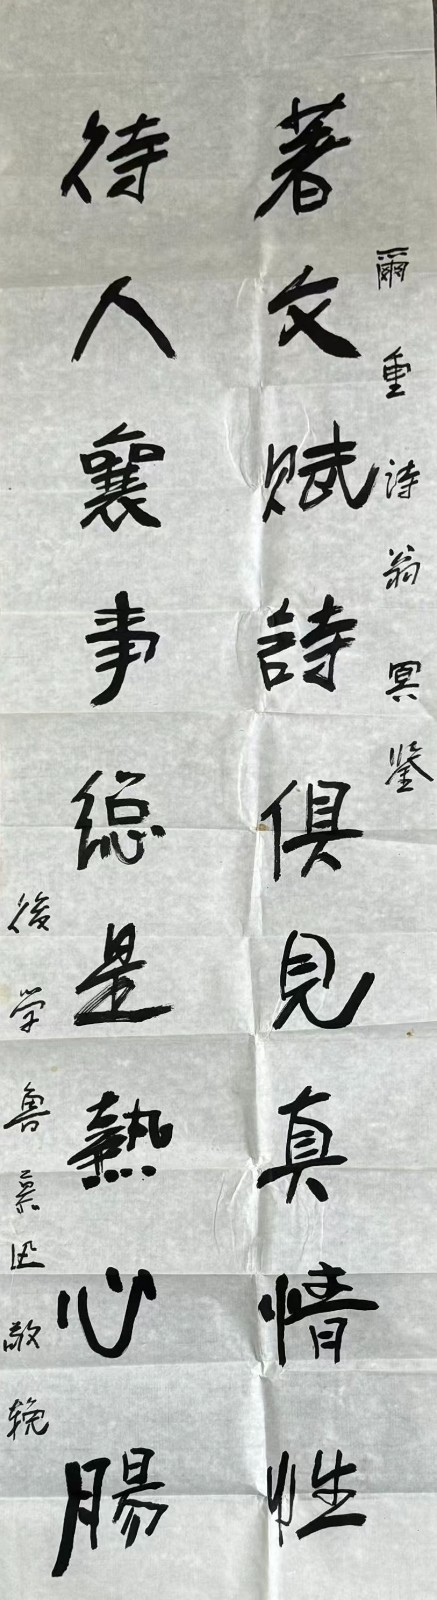 爾重詩翁冥鉴
著文赋詩俱見真情性
待人襄事総是熱心腸
後学魯慕迅敬輓